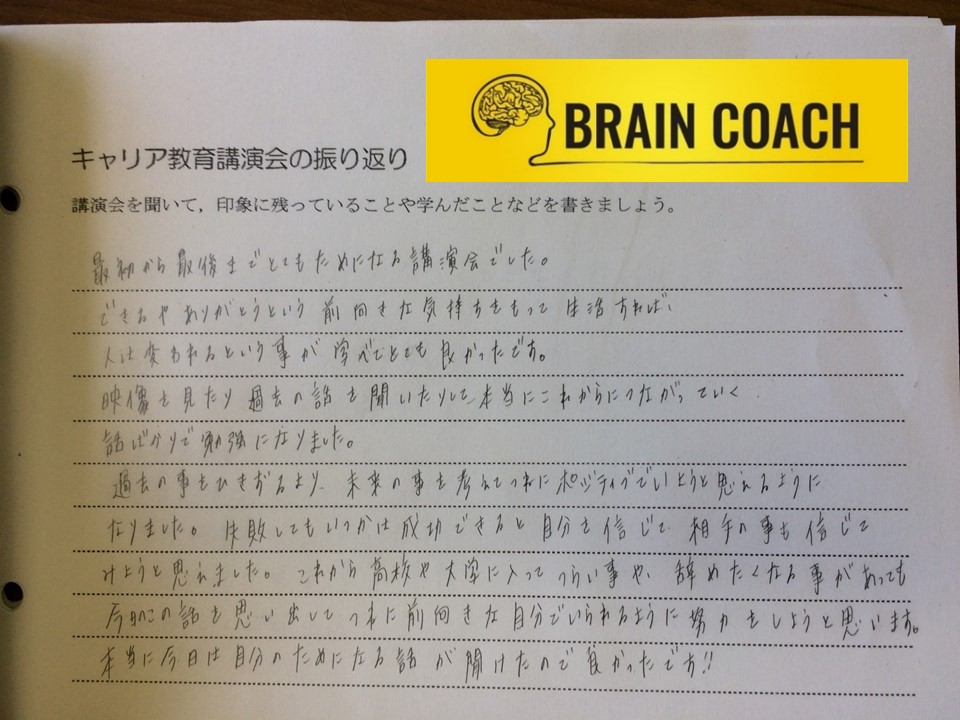 BRAIN COACH
キャリア教育講演会の振り返り
講演会を聞いて，印象に残っていることや学んだことなどを書きましょう。
最初から最後までとてもためになる講演会でした。
できるやありがとうという前向きな気持ちをもって生活すれば、
人は変われるという事が学べてとても良かったです。
映像を見たり過去の話を聞いたりして本当にこれからにつながっていく
話ばかりで勉強になりました。
過去の事をひきずるより、未来の事を考えてつねにポジティブでいようと思えるように
なりました。失敗してもいつかは成功できると自分を信じて、相手の事も信じて
みようと思えました。これから高校や大学に入ってつらい事や、辞めたくなる事があっても
今日のこの話を思い出してつねに前向きな自分でいられるように努力をしようと思います。
本当に今日は自分のためになる話が聞けたので良かったです!!